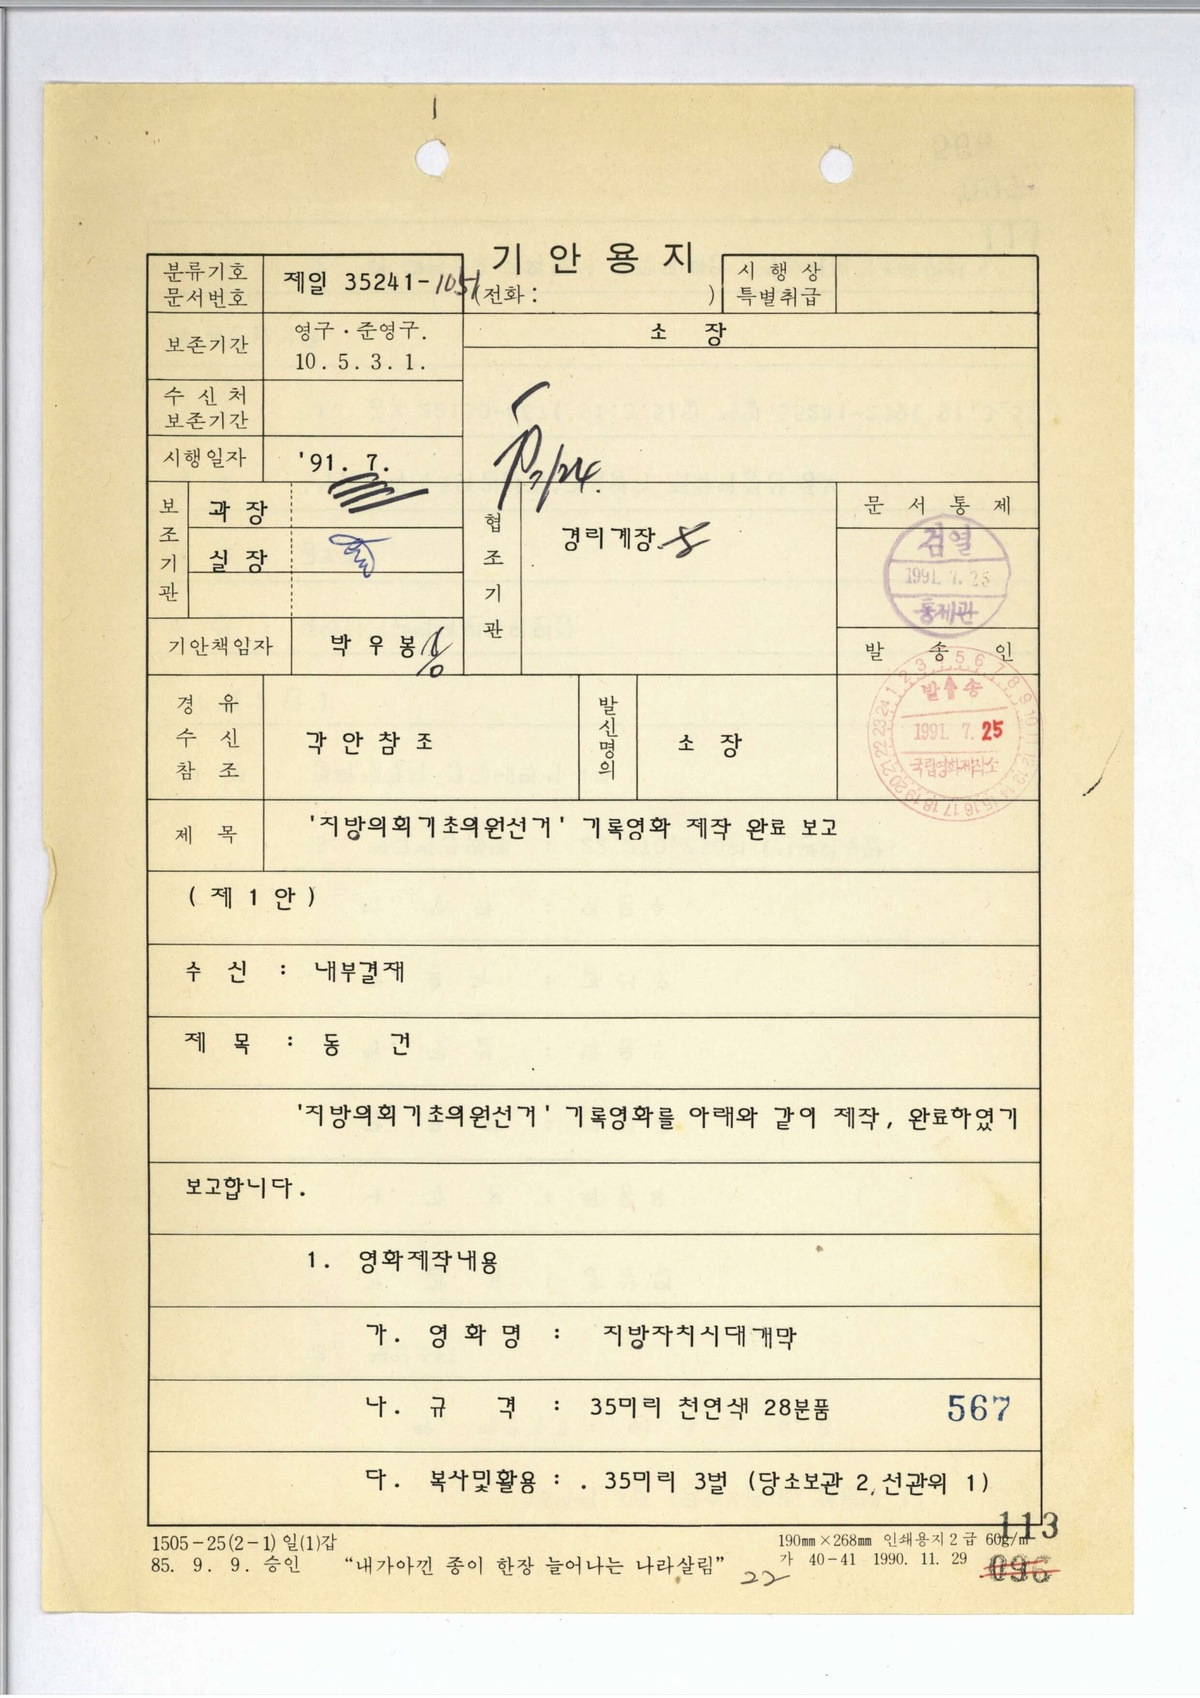 기 안 용 지
분류기호
문서번호
제일 35241-1051
(전화 : )
시 행 상
특별취급
보존기간
영구 · 준영구.
10. 5. 3. 1.
소 장
수 신 처
보존기간
시행일자
'91. 7.
7/24.
보조기관
과 장
실 장
협조기관
경리계장
문 서 통 제
검열
1991. 7. 25
통제관
기안책임자
박 우 봉
발 송 인
발 송
1991. 7. 25
국립영화제작소
경 유
수 신
참 조
각 안 참 조
발신명의
소 장
제 목
'지방의회기초의원선거' 기록영화 제작 완료 보고
( 제 1 안 )
수 신 : 내부결재
제 목 : 동 건
'지방의회기초의원선거' 기록영화를 아래와 같이 제작, 완료하였기
보고합니다.
1. 영화제작내용
가. 영 화 명 : 지방자치시대개막
나. 규 격 : 35미리 천연색 28분품
567
다. 복사및활용 : . 35미리 3벌 (당소보관 2, 선관위 1)
113
1505-25(2-1) 일(1)갑
190㎜×268㎜ 인쇄용지 2 급 60g/㎡
85. 9. 9. 승인
"내가아낀 종이 한장 늘어나는 나라살림"
22
가 40-41 1990. 11. 29
096